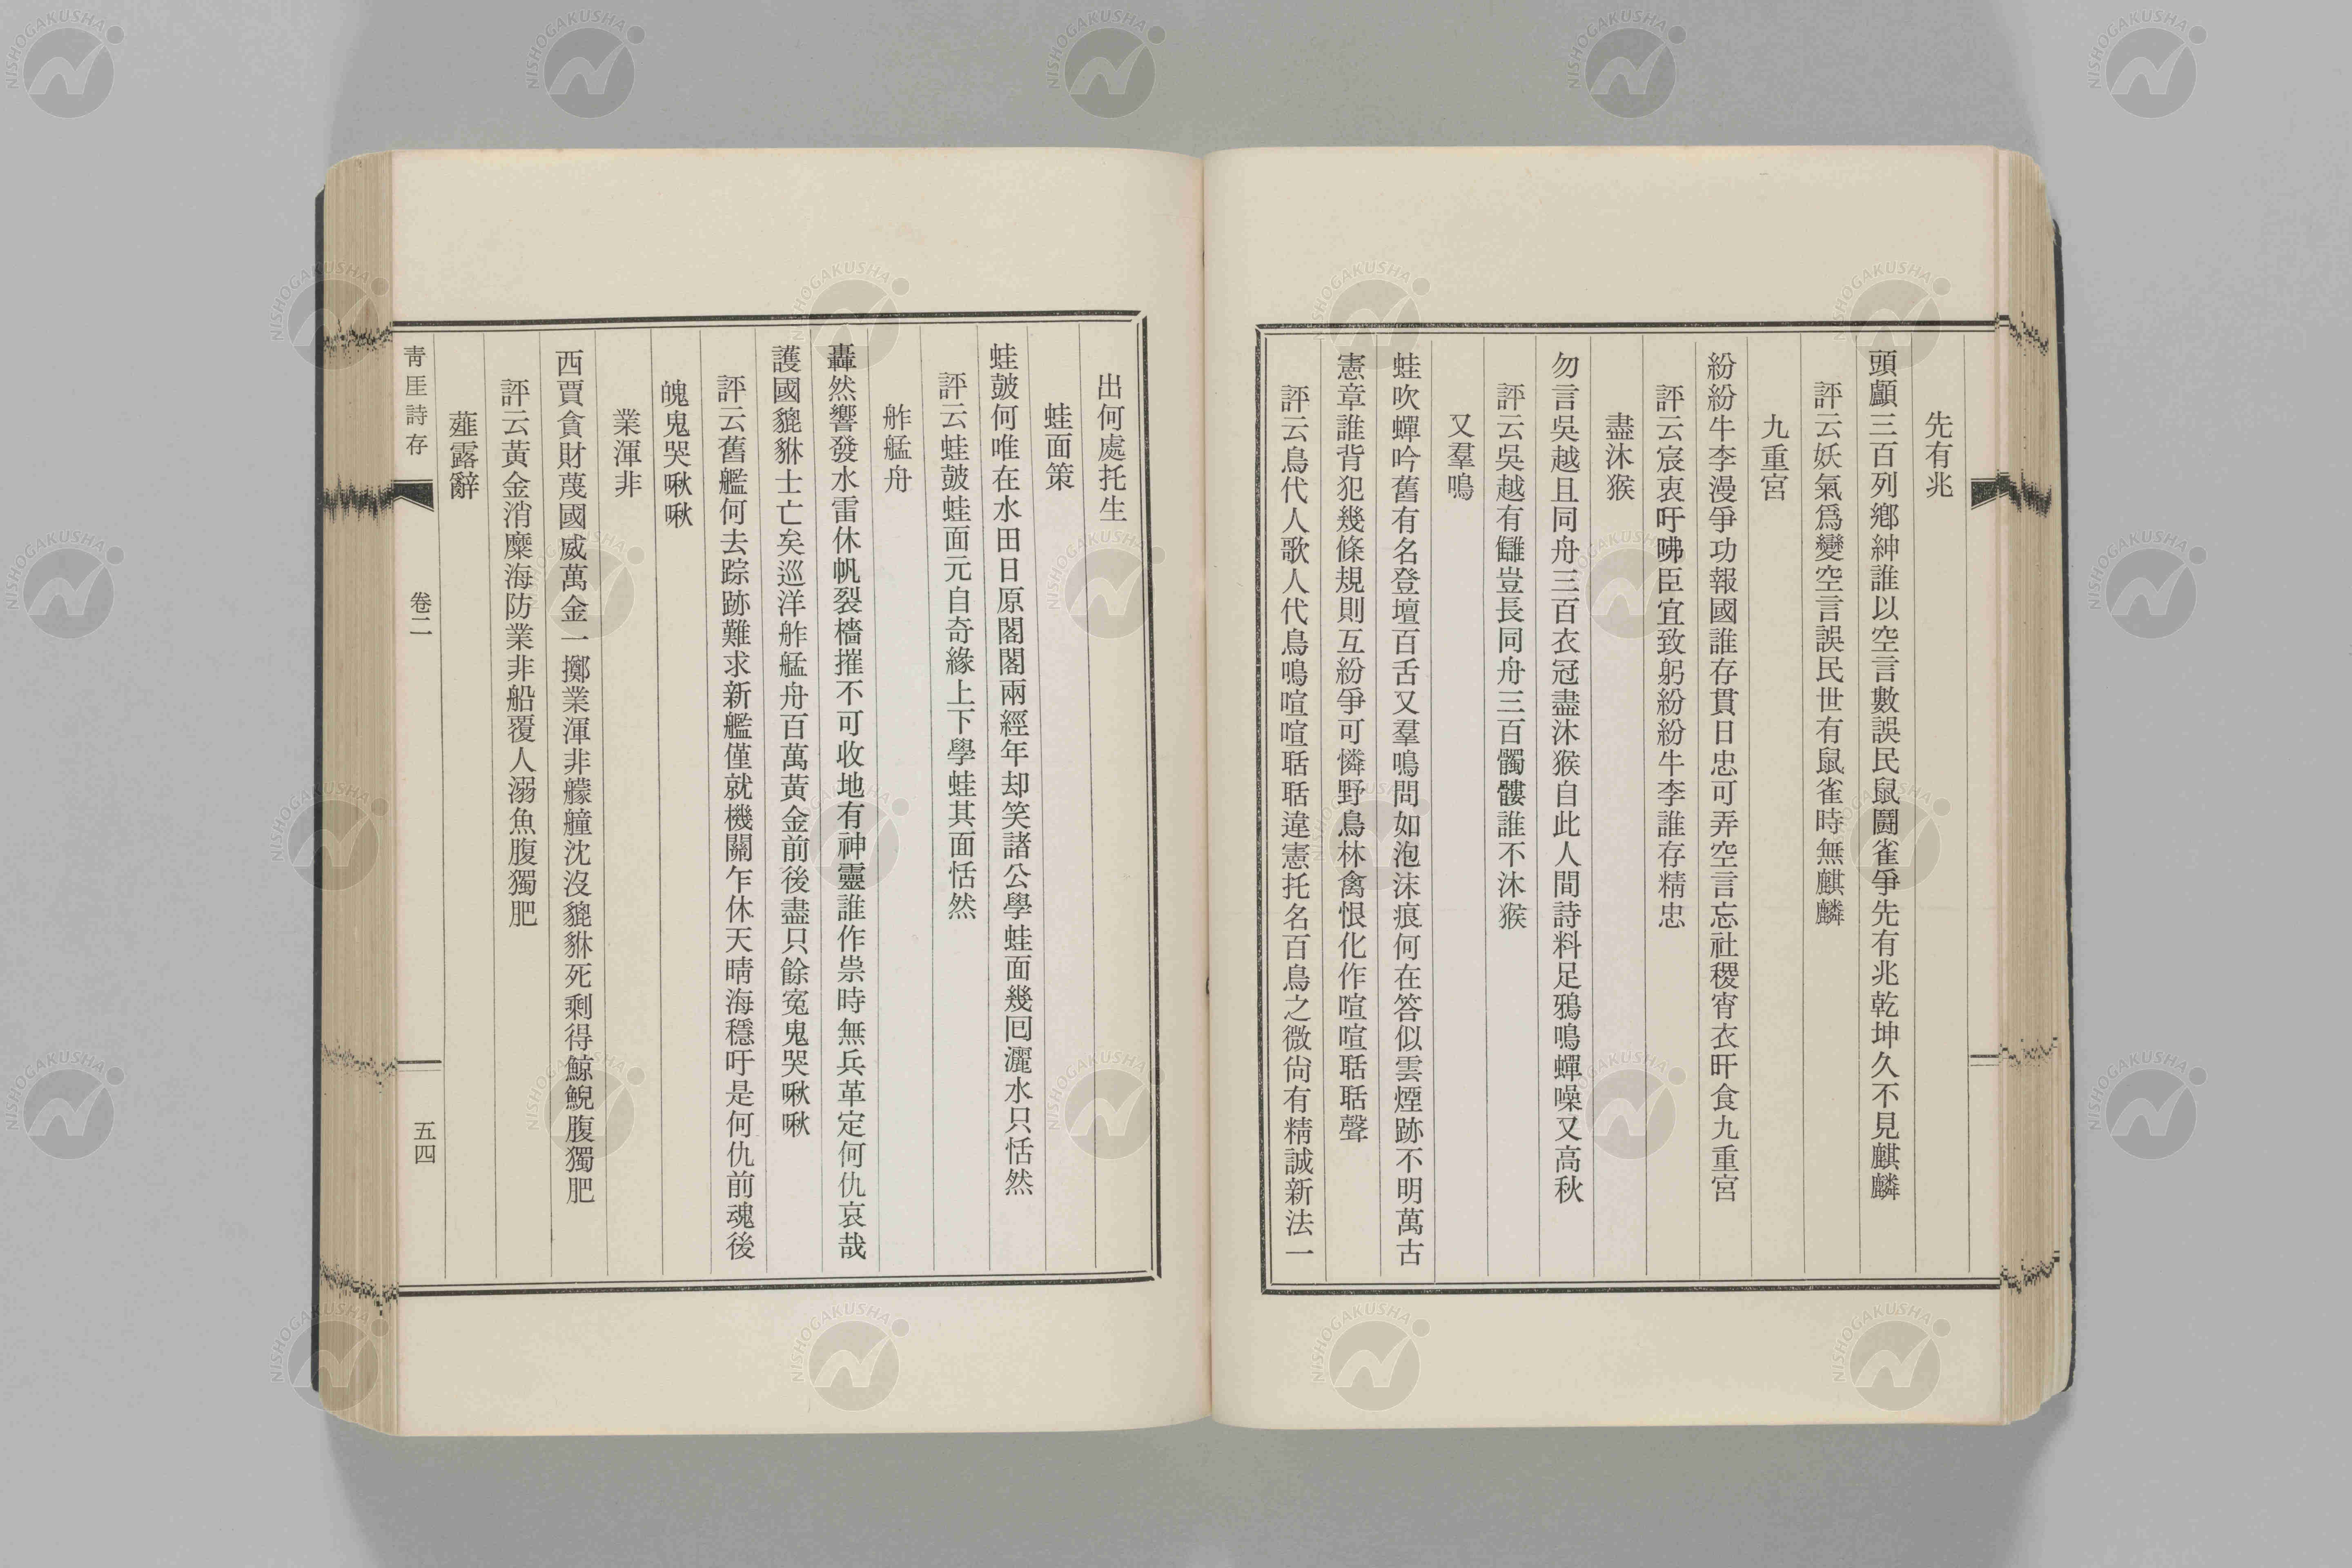 先有兆
頭顱三百列鄕紳誰以空言數誤民鼠鬪雀爭先有兆乾坤久不見麒麟
評云妖氣爲變空言誤民世有鼠雀時無麒麟
九重宮
紛紛牛李漫爭功報國誰存貫日忠可弄空言忘社稷宵衣旰食九重宮
評云宸衷吁咈臣宜致躬紛紛牛李誰存精忠
盡沐猴
勿言吳越且同舟三百衣冠盡沐猴自此人間詩料足鴉鳴蟬噪又高秋
評云吳越有讎豈長同舟三百髑髏誰不沐猴
又羣鳴
蛙吹蟬吟舊有名登壇百舌又羣鳴問如泡沫痕何在答似雲煙跡不明萬古
憲章誰背犯幾條規則互紛爭可憐野鳥林禽恨化作喧喧聒聒聲
評云鳥代人歌人代鳥鳴喧喧聒聒違憲托名百鳥之微尙有精誠新法一
出何處托生
蛙面策
蛙皷何唯在水田日原閣閣兩經年却笑諸公學蛙面幾囘灑水只恬然
評云蛙皷蛙面元自奇緣上下學蛙其面恬然
舴艋舟
轟然響發水雷休帆裂檣摧不可收地有神靈誰作祟時無兵革定何仇哀哉
護國貔貅士亡矣巡洋舴艋舟百萬黃金前後盡只餘寃鬼哭啾啾
評云舊艦何去踪跡難求新艦僅就機關乍休天晴海穩吁是何仇前魂後
魄鬼哭啾啾
業渾非
西賈貪財蔑國威萬金一擲業渾非艨艟沈沒貔貅死剩得鯨鯢腹獨肥
評云黃金消糜海防業非船覆人溺魚腹獨肥
薤露辭
靑厓詩存
卷二
五四
NISHOGAKUSHA